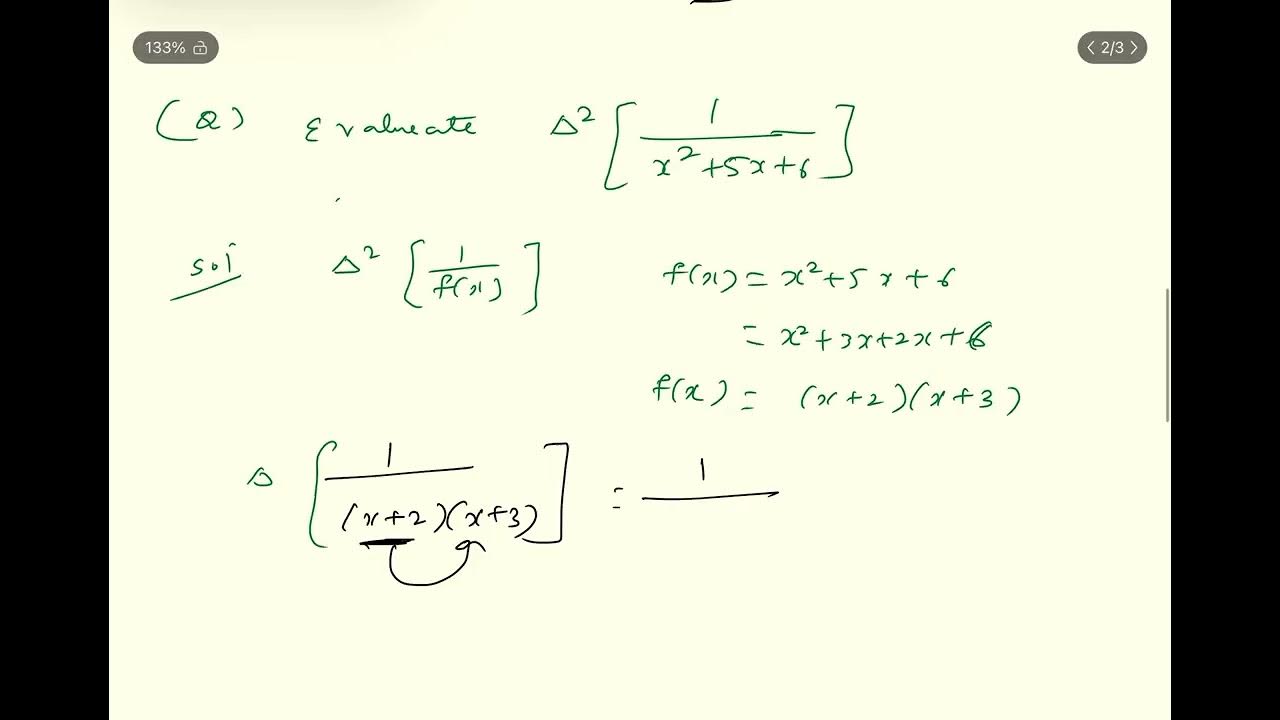 133%
2/3
(Q) Evalueate Δ² [1/(x²+5x+6)]
Sol Δ² [1/f(x)]
f(x) = x²+5x+6
= x²+3x+2x+6
f(x) = (x+2)(x+3)
Δ [1/((x+2)(x+3))] = 1/